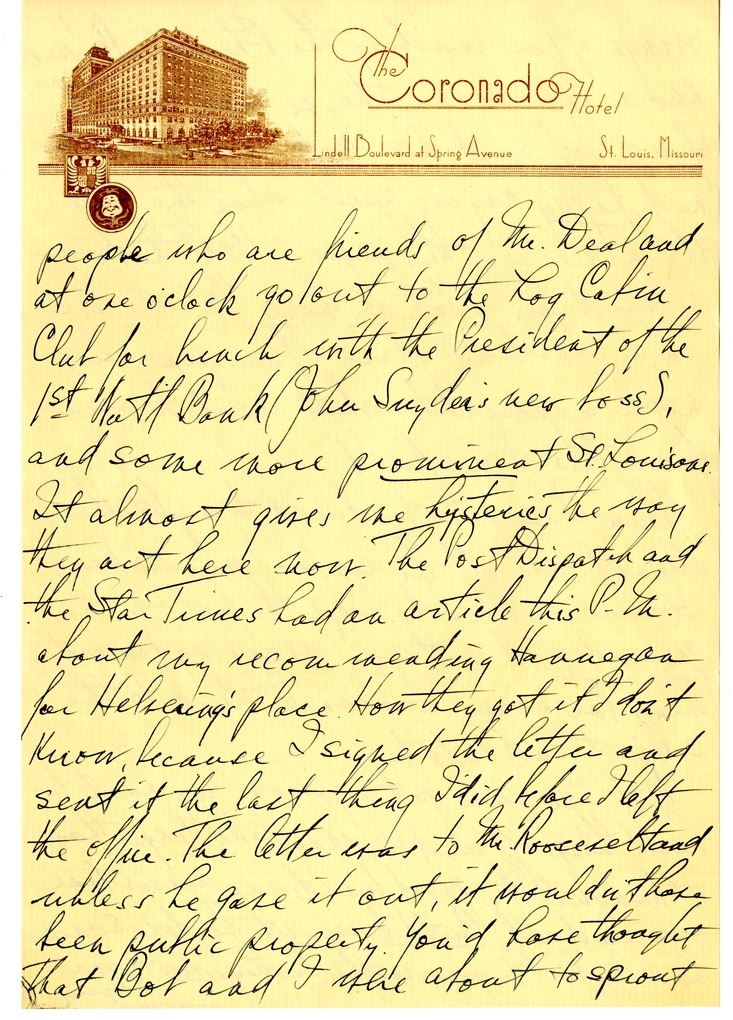 The
Coronado
Hotel
Lindell Boulevard at Spring Avenue
St. Louis, Missouri
people who are friends of Mr. Deal and
at one o'clock go out to the Log Cabin
Club for lunch with the President of the
1st Nat'l Bank (John Snyder's new boss),
and some more prominent St. Louisans.
It almost gives me hysterics the way
they act here now. The Post Dispatch and
the Star Times had an article this P.M.
about my recommending Hannegan
for Helvering's place. How they got it I don't
know, because I signed the letter and
sent it the last thing I did before I left
the office. The letter was to Mr. Roosevelt and
unless he gave it out, it wouldn't have
been public property. You'd have thought
that Bob and I were about to sprout